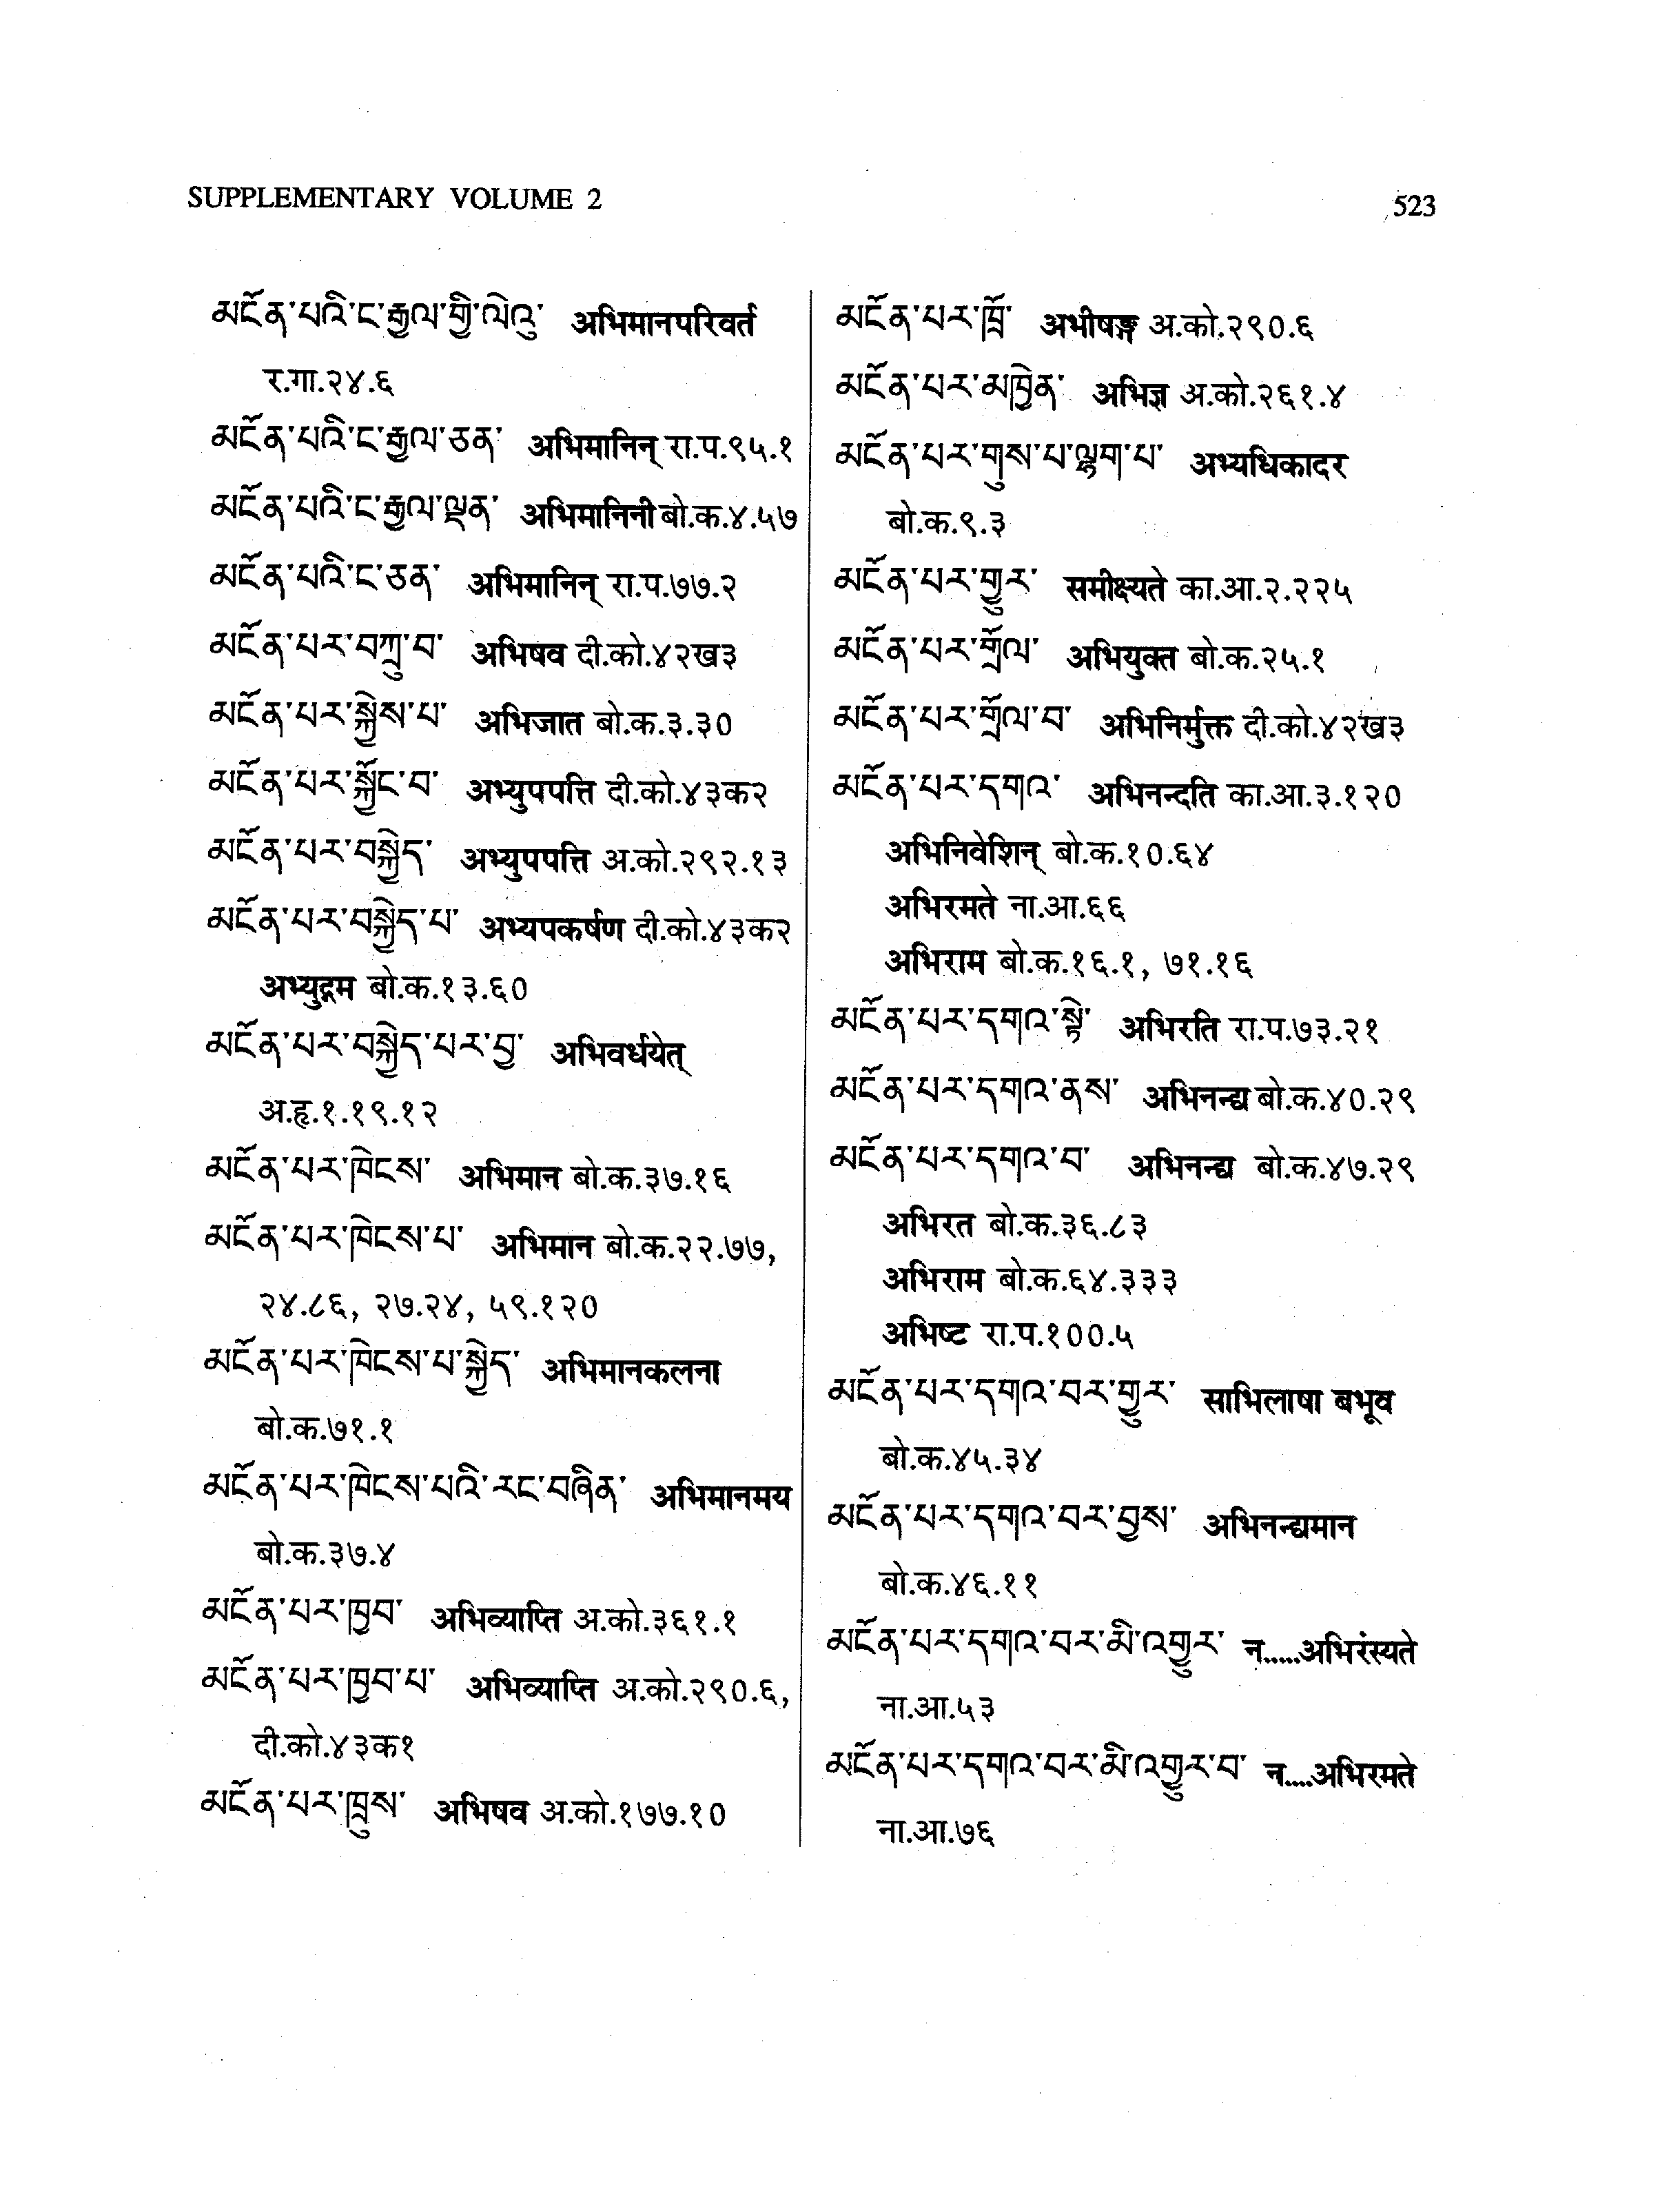 SUPPLEMENTARY VOLUME 2
523
མངོན་པའི་ང་རྒྱལ་གྱི་ལེའུ་ अभिमानपरिवर्त
र.गा.२४.६
མངོན་པའི་ང་རྒྱལ་ཅན་ अभिमानिन् रा.प.९५.१
མངོན་པའི་ང་རྒྱལ་ལྡན་ अभिमानिनी बो.क.४.५७
མངོན་པའི་ང་ཅན་ अभिमानिन् रा.प.७७.२
མངོན་པར་བཀྲུ་བ་ अभिषव दी.को.४२ख३
མངོན་པར་སྐྱེས་པ་ अभिजात बो.क.३.३०
མངོན་པར་སྐྱོང་བ་ अभ्युपपत्ति दी.को.४३क२
མངོན་པར་བསྐྱེད་ अभ्युपपत्ति अ.को.२९२.१३
མངོན་པར་བསྐྱེད་པ་ अभ्यपकर्षण दी.को.४३क२
अभ्युद्गम बो.क.१३.६०
མངོན་པར་བསྐྱེད་པར་བྱ་ अभिवर्धयेत्
अ.हृ.१.१९.१२
མངོན་པར་ཁེངས་ अभिमान बो.क.३७.१६
མངོན་པར་ཁེངས་པ་ अभिमान बो.क.२२.७७,
२४.८६, २७.२४, ५९.१२०
མངོན་པར་ཁེངས་པ་སྐྱེད་ अभिमानकलना
बो.क.७१.१
མངོན་པར་ཁེངས་པའི་རང་བཞིན་ अभिमानमय
बो.क.३७.४
མངོན་པར་ཁྱབ་ अभिव्याप्ति अ.को.३६१.१
མངོན་པར་ཁྱབ་པ་ अभिव्याप्ति अ.को.२९०.६,
दी.को.४३क१
མངོན་པར་ཁྲུས་ अभिषव अ.को.१७७.१०
མངོན་པར་ཁྲོ་ अभीषङ्ग अ.को.२९०.६
མངོན་པར་མཁྱེན་ अभिज्ञ अ.को.२६१.४
མངོན་པར་གུས་པ་ལྷག་པ་ अभ्यधिकादर
बो.क.९.३
མངོན་པར་གྱུར་ समीक्ष्यते का.आ.२.२२५
མངོན་པར་གྲོལ་ अभियुक्त बो.क.२५.१
མངོན་པར་གྲོལ་བ་ अभिनिर्मुक्त दी.को.४२ख३
མངོན་པར་དགའ་ अभिनन्दति का.आ.३.१२०
अभिनिवेशिन् बो.क.१०.६४
अभिरमते ना.आ.६६
अभिराम बो.क.१६.१, ७१.१६
མངོན་པར་དགའ་སྟེ་ अभिरति रा.प.७३.२१
མངོན་པར་དགའ་ནས་ अभिनन्द्य बो.क.४०.२९
མངོན་པར་དགའ་བ་ अभिनन्द्य बो.क.४७.२९
अभिरत बो.क.३६.८३
अभिराम बो.क.६४.३३३
अभिष्ट रा.प.१००.५
མངོན་པར་དགའ་བར་གྱུར་ साभिलाषा बभूव
बो.क.४५.३४
མངོན་པར་དགའ་བར་བྱས་ अभिनन्द्यमान
बो.क.४६.११
མངོན་པར་དགའ་བར་མི་འགྱུར་ न.....अभिरंस्यते
ना.आ.५३
མངོན་པར་དགའ་བར་མི་འགྱུར་བ་ न....अभिरमते
ना.आ.७६